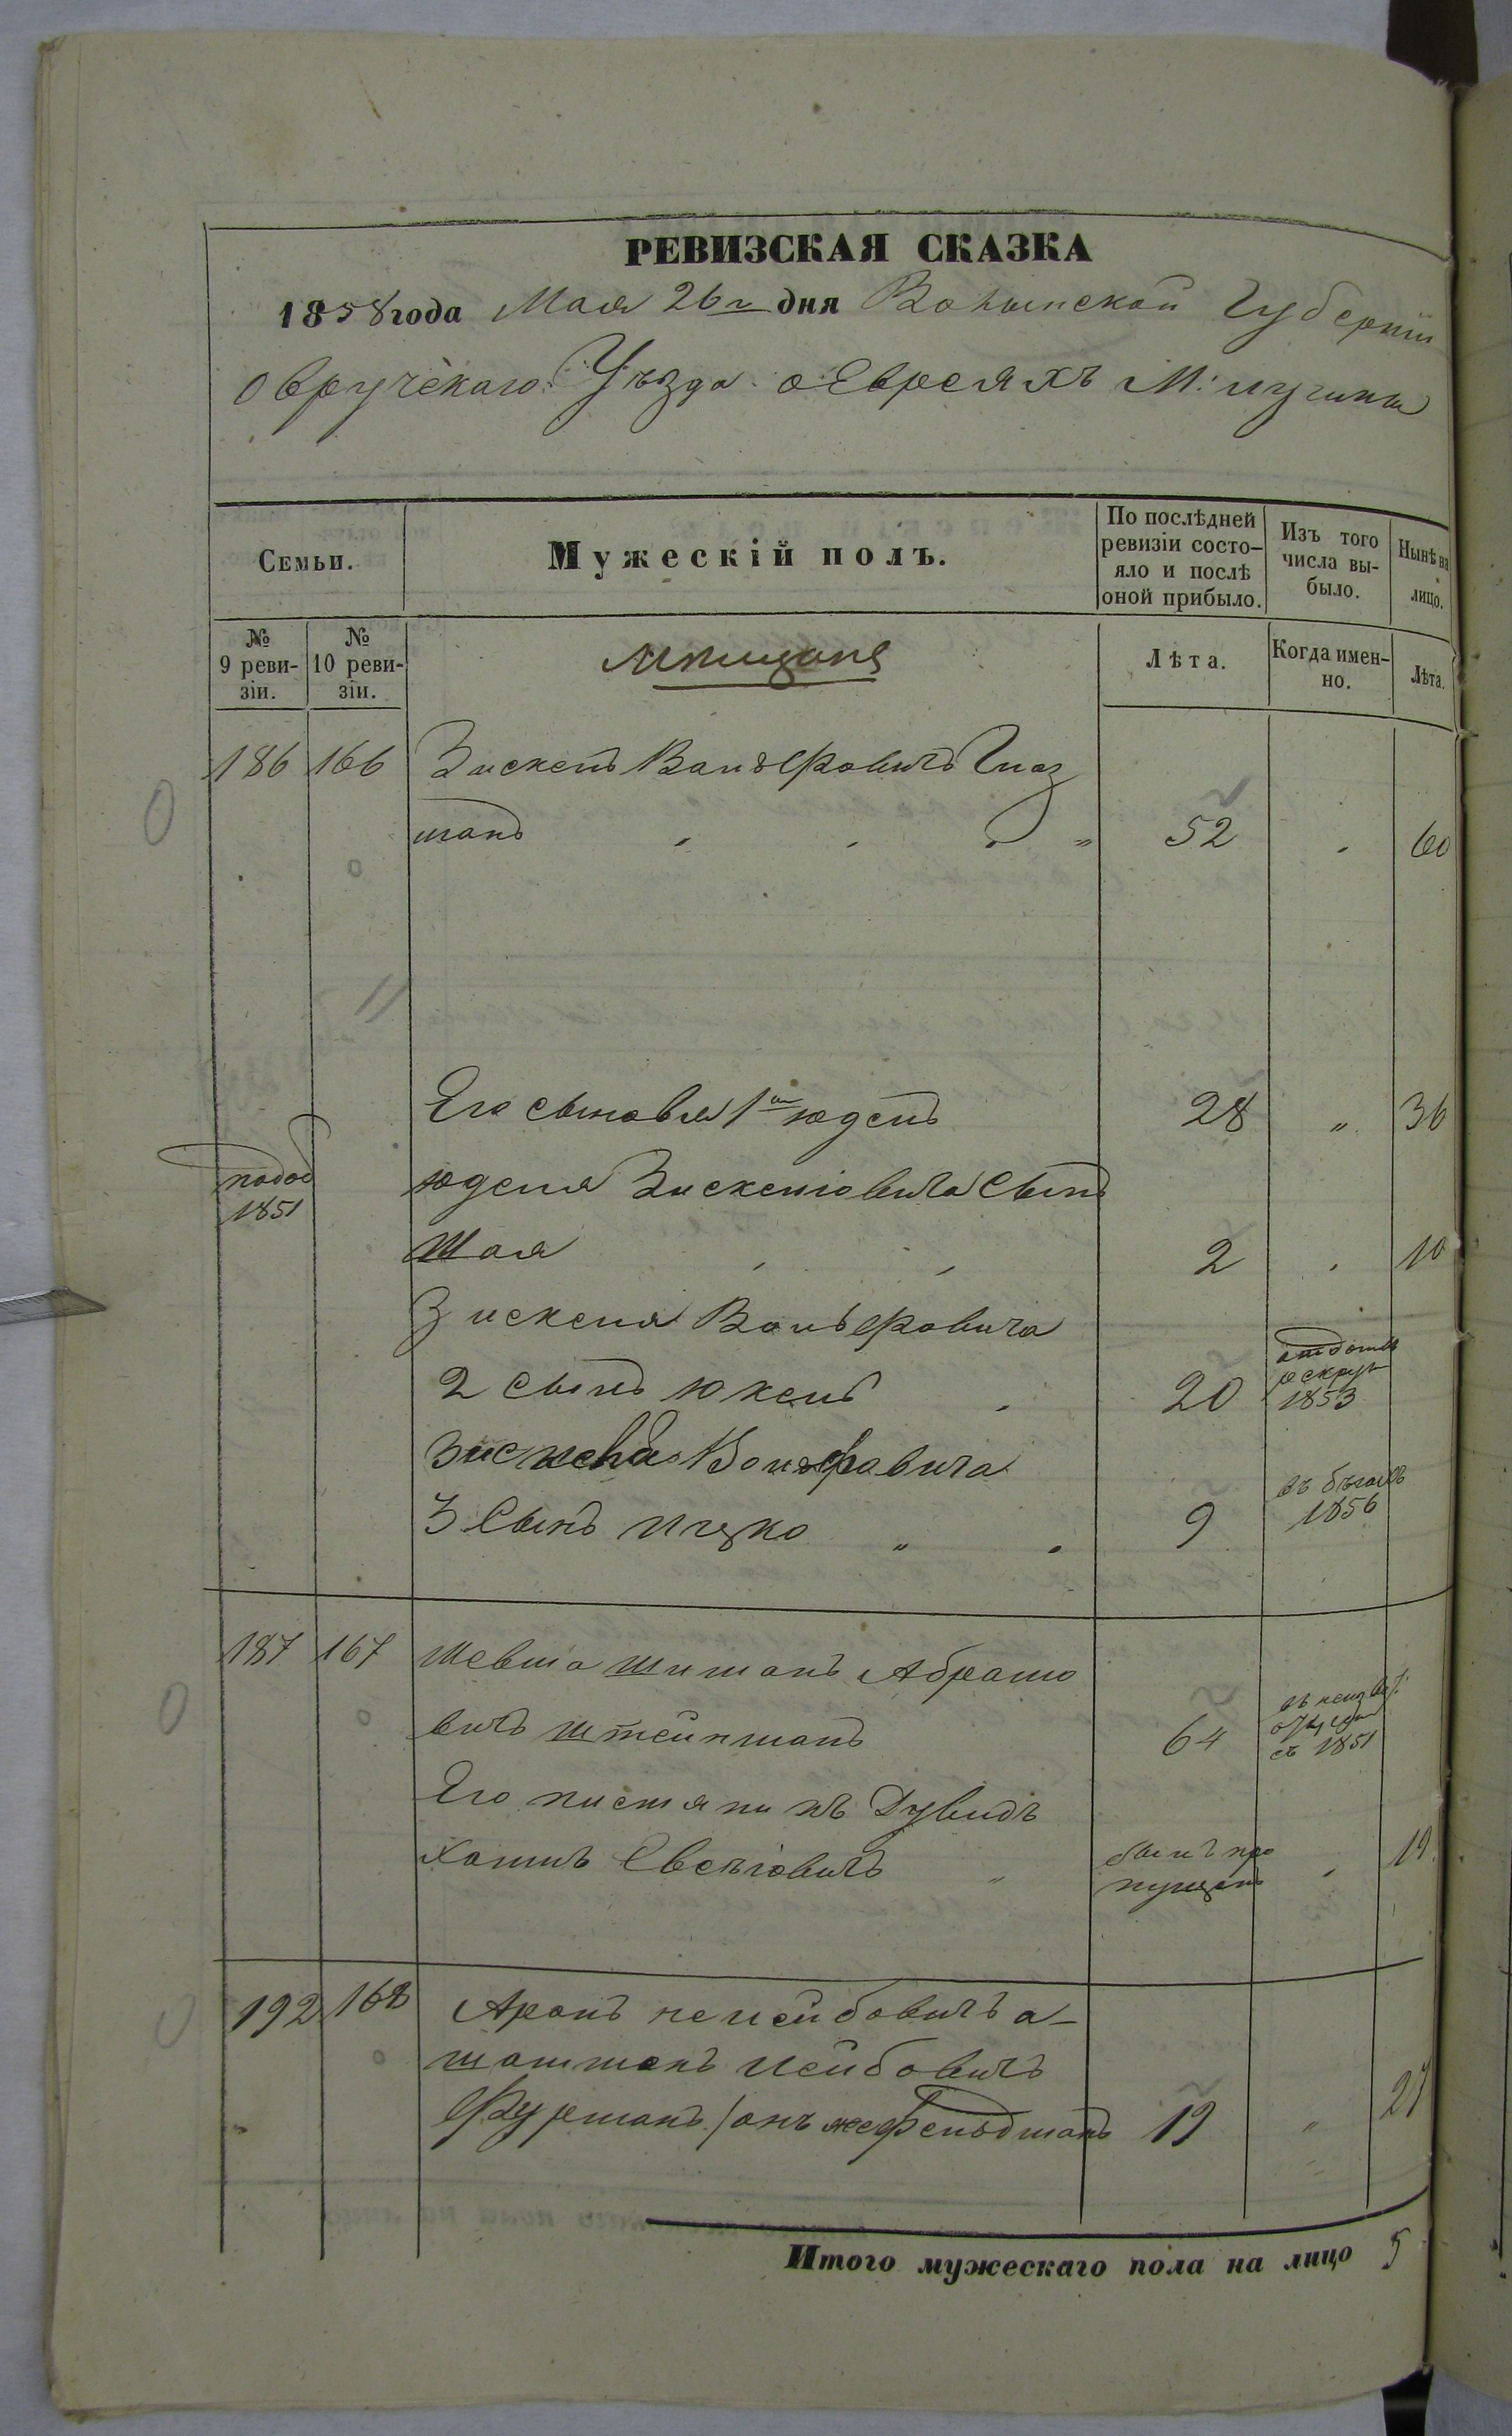 РЕВИЗСКАЯ СКАЗКА
1858 года Мая 26го дня Волынской Губернiи
Овручскаго Уѣзда о Евреяхъ М: Лугинъ
Семьи.
Мужескій полъ.
По послѣдней ревизіи состо-
яло и послѣ
оной прибыло.
Изъ того
числа вы-
было.
Нынѣ на
лицо.
№
9 реви-
зіи.
№
10 реви-
зіи.
Мѣщане
Лѣта.
Когда имен-
но.
Лѣта.
186 166 Зискель Вольфовичъ Глаз
манъ 52 60
Его сыновья 1й Юдель 28 36
1851
Юделя Зискелiовича Сынъ
Шая 2 10
Зискеля Вольфовича
2 сынъ Юкель 20
рекрут
1853
Зискеля Вольфовича
3 Сынъ Ицко 9
въ бѣгахъ
1856
187 167 Шимонъ Абрамо
вичъ Штейнманъ 64
съ 1851
Его племянникъ Дувидъ
Хаимъ былъ про
пущенъ 19
192 168 Аронъ Лейбовичъ а
Лейбовичъ
Фурманъ / онъ же Фельдманъ 19 27
Итого мужескаго пола на лицо 5